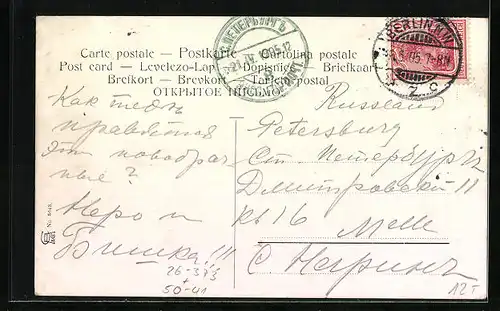 Carte postale — Postkarte — Cartolina postale
Post card — Levelezo-Lap — Dopisnice — Briefkaart
Brefkort — Brevkort — Tarjeta postal
ОТКРЫТОЕ ПИСЬМО
BERLIN
7-8N
Как тебѣ
нравятся
эти новобрач
ные?
Неро и
Бишка!!!
26-3
50-41
Russland
Petersburg
Ст. Петербург
Дмитровский 11
кв 16
Melle
С. Негринъ
12т